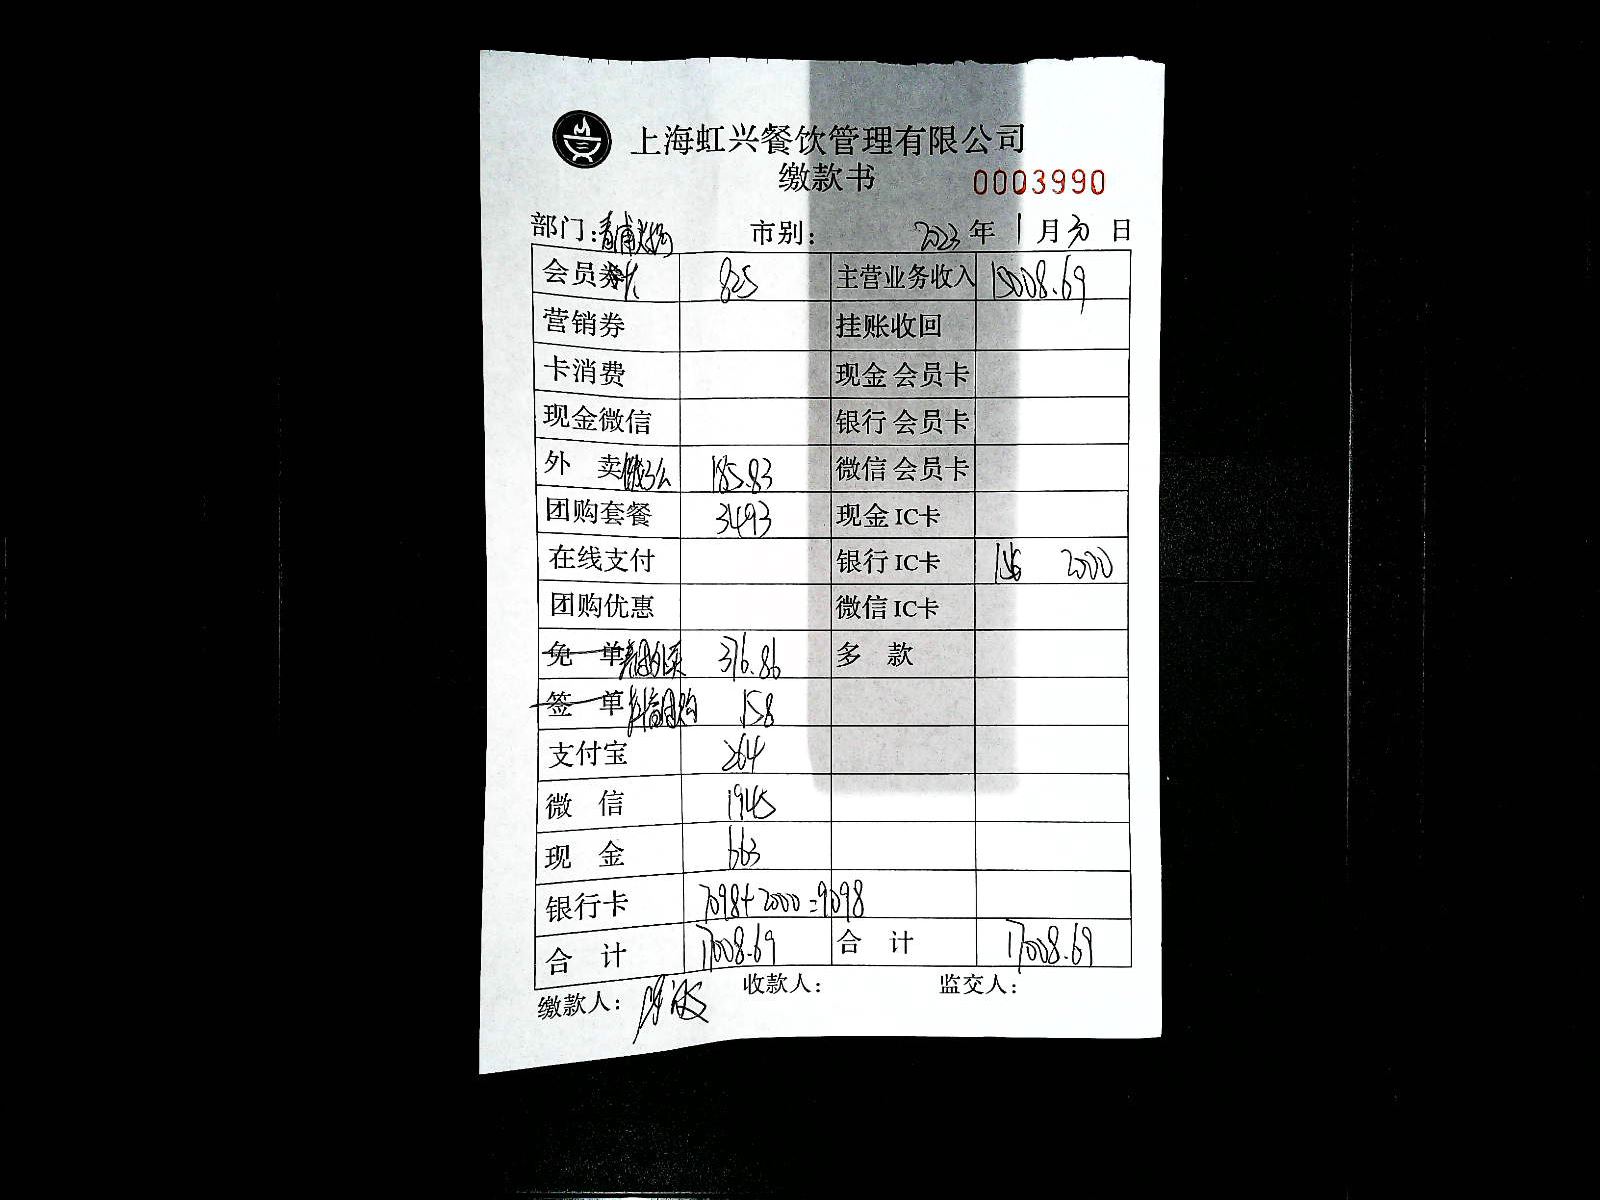 上海虹兴餐饮管理有限公司
缴款书 0003990
部门: 青浦 市别: 2023年1月30日
会员 825 主营业务收入 15008.69
营销券 挂账收回
卡消费 现金会员卡
现金微信 银行会员卡
外卖 饿了么 185.83 微信会员卡
团购套餐 3493 现金IC卡
在线支付 银行IC卡 2000
团购优惠 微信IC卡
免单 376.86 多款
签单 抖音团购 158
支付宝 264
微信 1945
现金 663
银行卡 7098+2000=9098
合计 17008.69 合计 17008.69
缴款人: 收款人: 监交人: